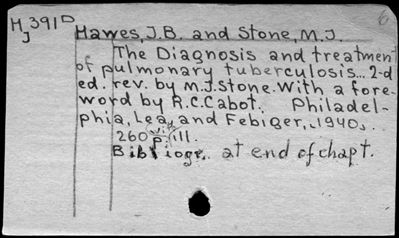 H,391D
J
Hawes, J.B. and Stone, M.J.
The Diagnosis and treatmen
of pulmonary tuberculosis... 2-d
ed. rev. by M.J. Stone. With a fore-
word by R.C. Cabot. Philadel-
phia, Lea, and Febiger, 1940.
260 p. ill.
Bibliogr. at end of chapt.